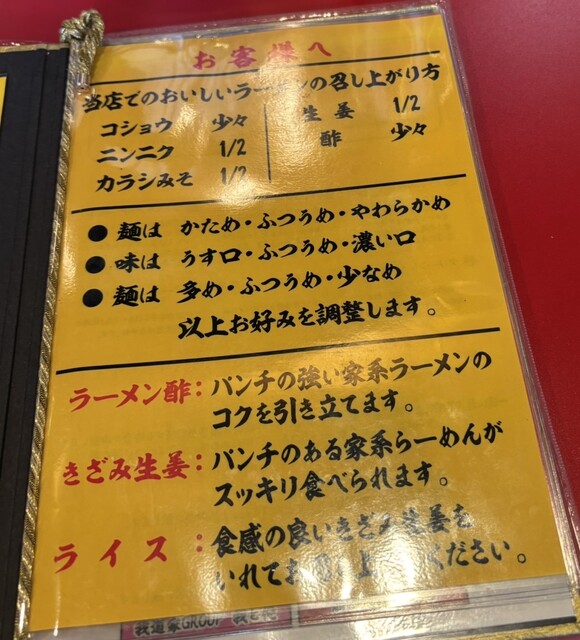 お客様へ
当店でのおいしいラーメンの召し上がり方
コショウ 少々
ニンニク 1/2
カラシみそ 1/2
生姜 1/2
酢 少々
●麺は かため・ふつうめ・やわらかめ
●味は うす口・ふつうめ・濃い口
●麺は 多め・ふつうめ・少なめ
以上お好みを調整します。
ラーメン酢：パンチの強い家系ラーメンの
コクを引き立てます。
きざみ生姜：パンチのある家系らーめんが
スッキリ食べられます。
ライス：食感の良いきざみ生姜を
いれてお召し上がりください。
我道家GROUP